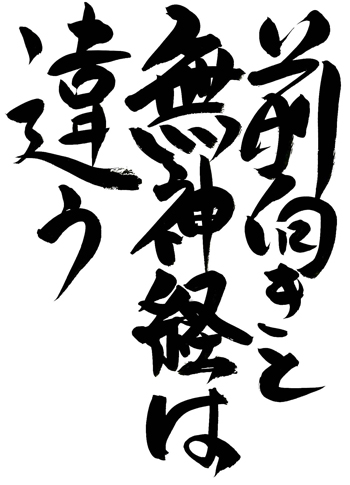 前向きと
無神経は
違う